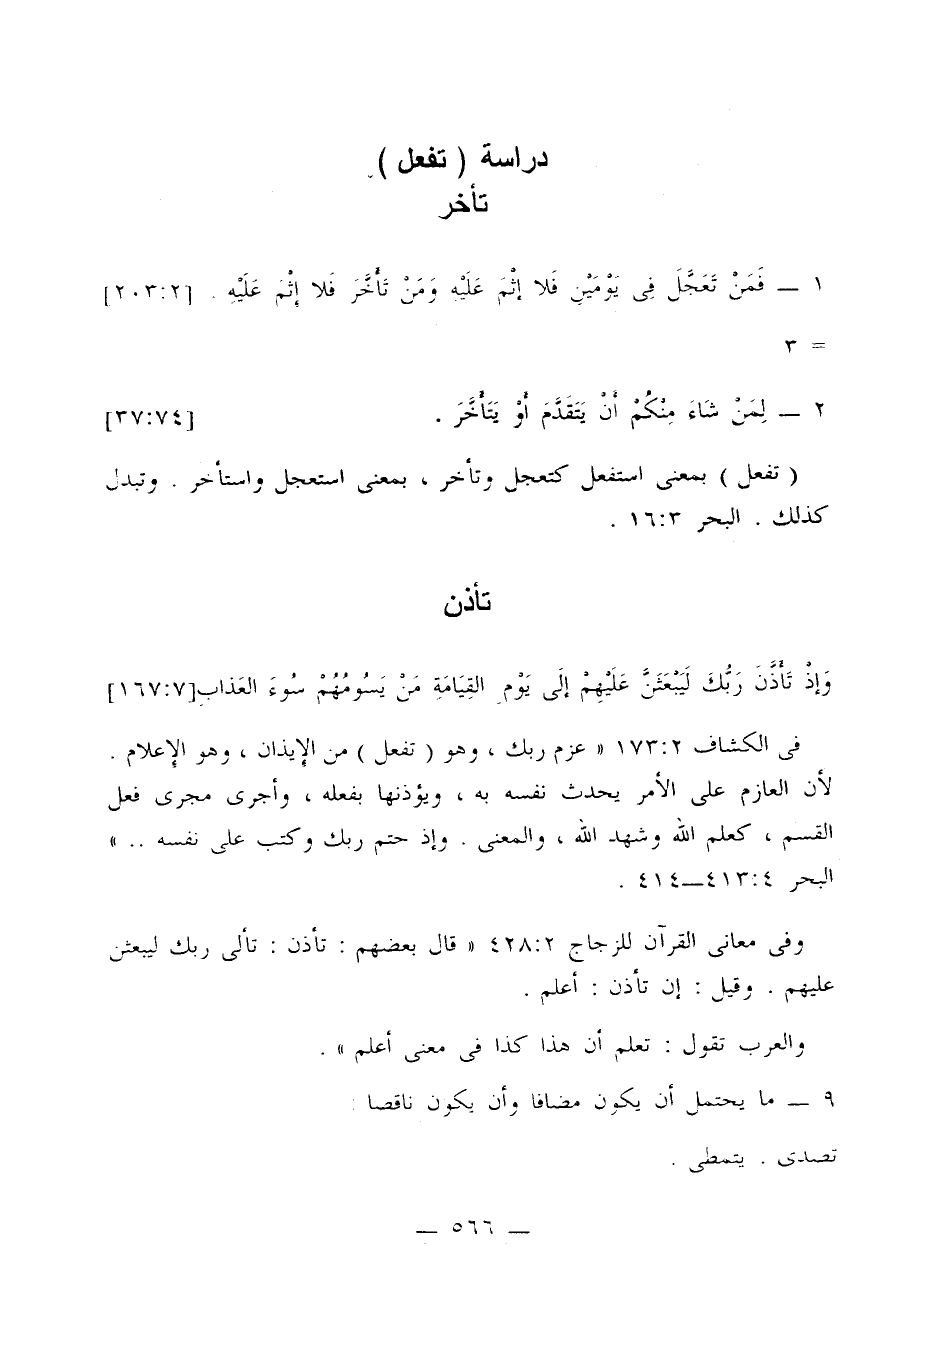 دراسة ( تفعل )
تأخر
١ ــ فَمَنْ تَعَجَّلَ فِى يَوْمَيْنِ فَلَا إثْمَ عَلَيْهِ وَمَنْ تَأَخَّرَ فَلا إثْمَ عَلَيْهِ . [٢٠٣:٢]
= ٣
٢ ــ لِمَنْ شَاءَ مِنْكُمْ أَنْ يَتَقَدَّمَ أَوْ يَتَأَخَّرَ . [٣٧:٧٤]
( تفعل ) بمعنى استفعل كتعجل وتأخر ، بمعنى استعجل واستأخر . وتبدل
كذلك . البحر ١٦:٣ .
تأذن
وَإذْ تَأَذَّنَ رَبُّكَ لَيَبْعَثَنَّ عَلَيْهِمْ إلَى يَوْمِ القِيَامَةِ مَنْ يَسُومُهُمْ سُوءَ العَذاب[١٦٧:٧]
فى الكشاف ١٧٣:٢ « عزم ربك ، وهو ( تفعل ) من الإيذان ، وهو الإعلام .
لأن العازم على الأمر يحدث نفسه به ، ويؤذنها بفعله ، وأجرى مجرى فعل
القسم ، كعلم الله وشهد الله ، والمعنى . وإذ حتم ربك وكتب على نفسه .. »
البحر ٤١٣:٤ــ٤١٤ .
وفى معانى القرآن للزجاج ٤٢٨:٢ « قال بعضهم : تأذن : تألى ربك ليبعثن
عليهم . وقيل : إن تأذن : أعلم .
والعرب تقول : تعلم أن هذا كذا فى معنى أعلم » .
٩ ــ ما يحتمل أن يكون مضافا وأن يكون ناقصا :
تصدى . يتمطى .
ــ ٥٦٦ ــ